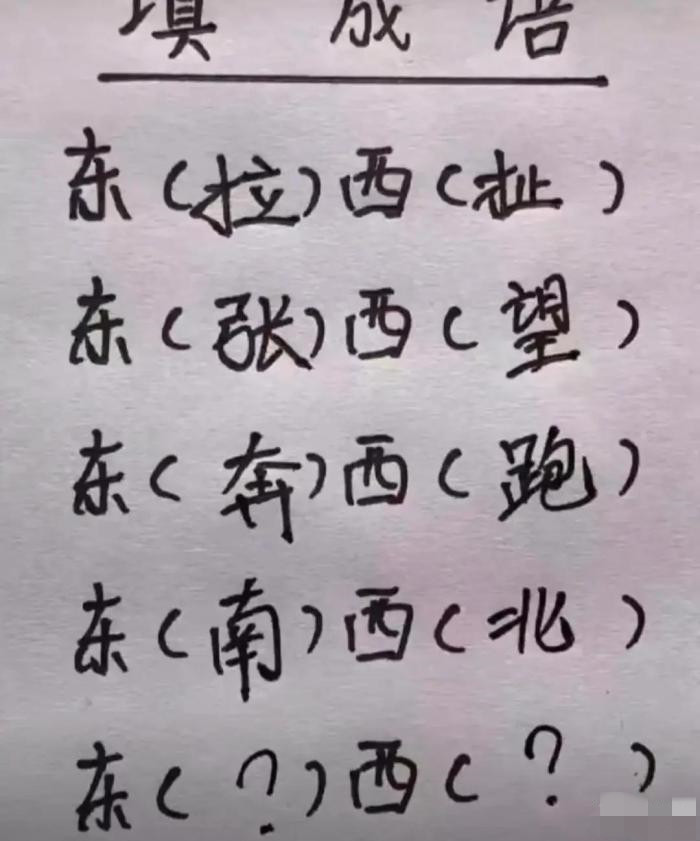 填成语
东(拉)西(扯)
东(张)西(望)
东(奔)西(跑)
东(南)西(北)
东(?)西(?)